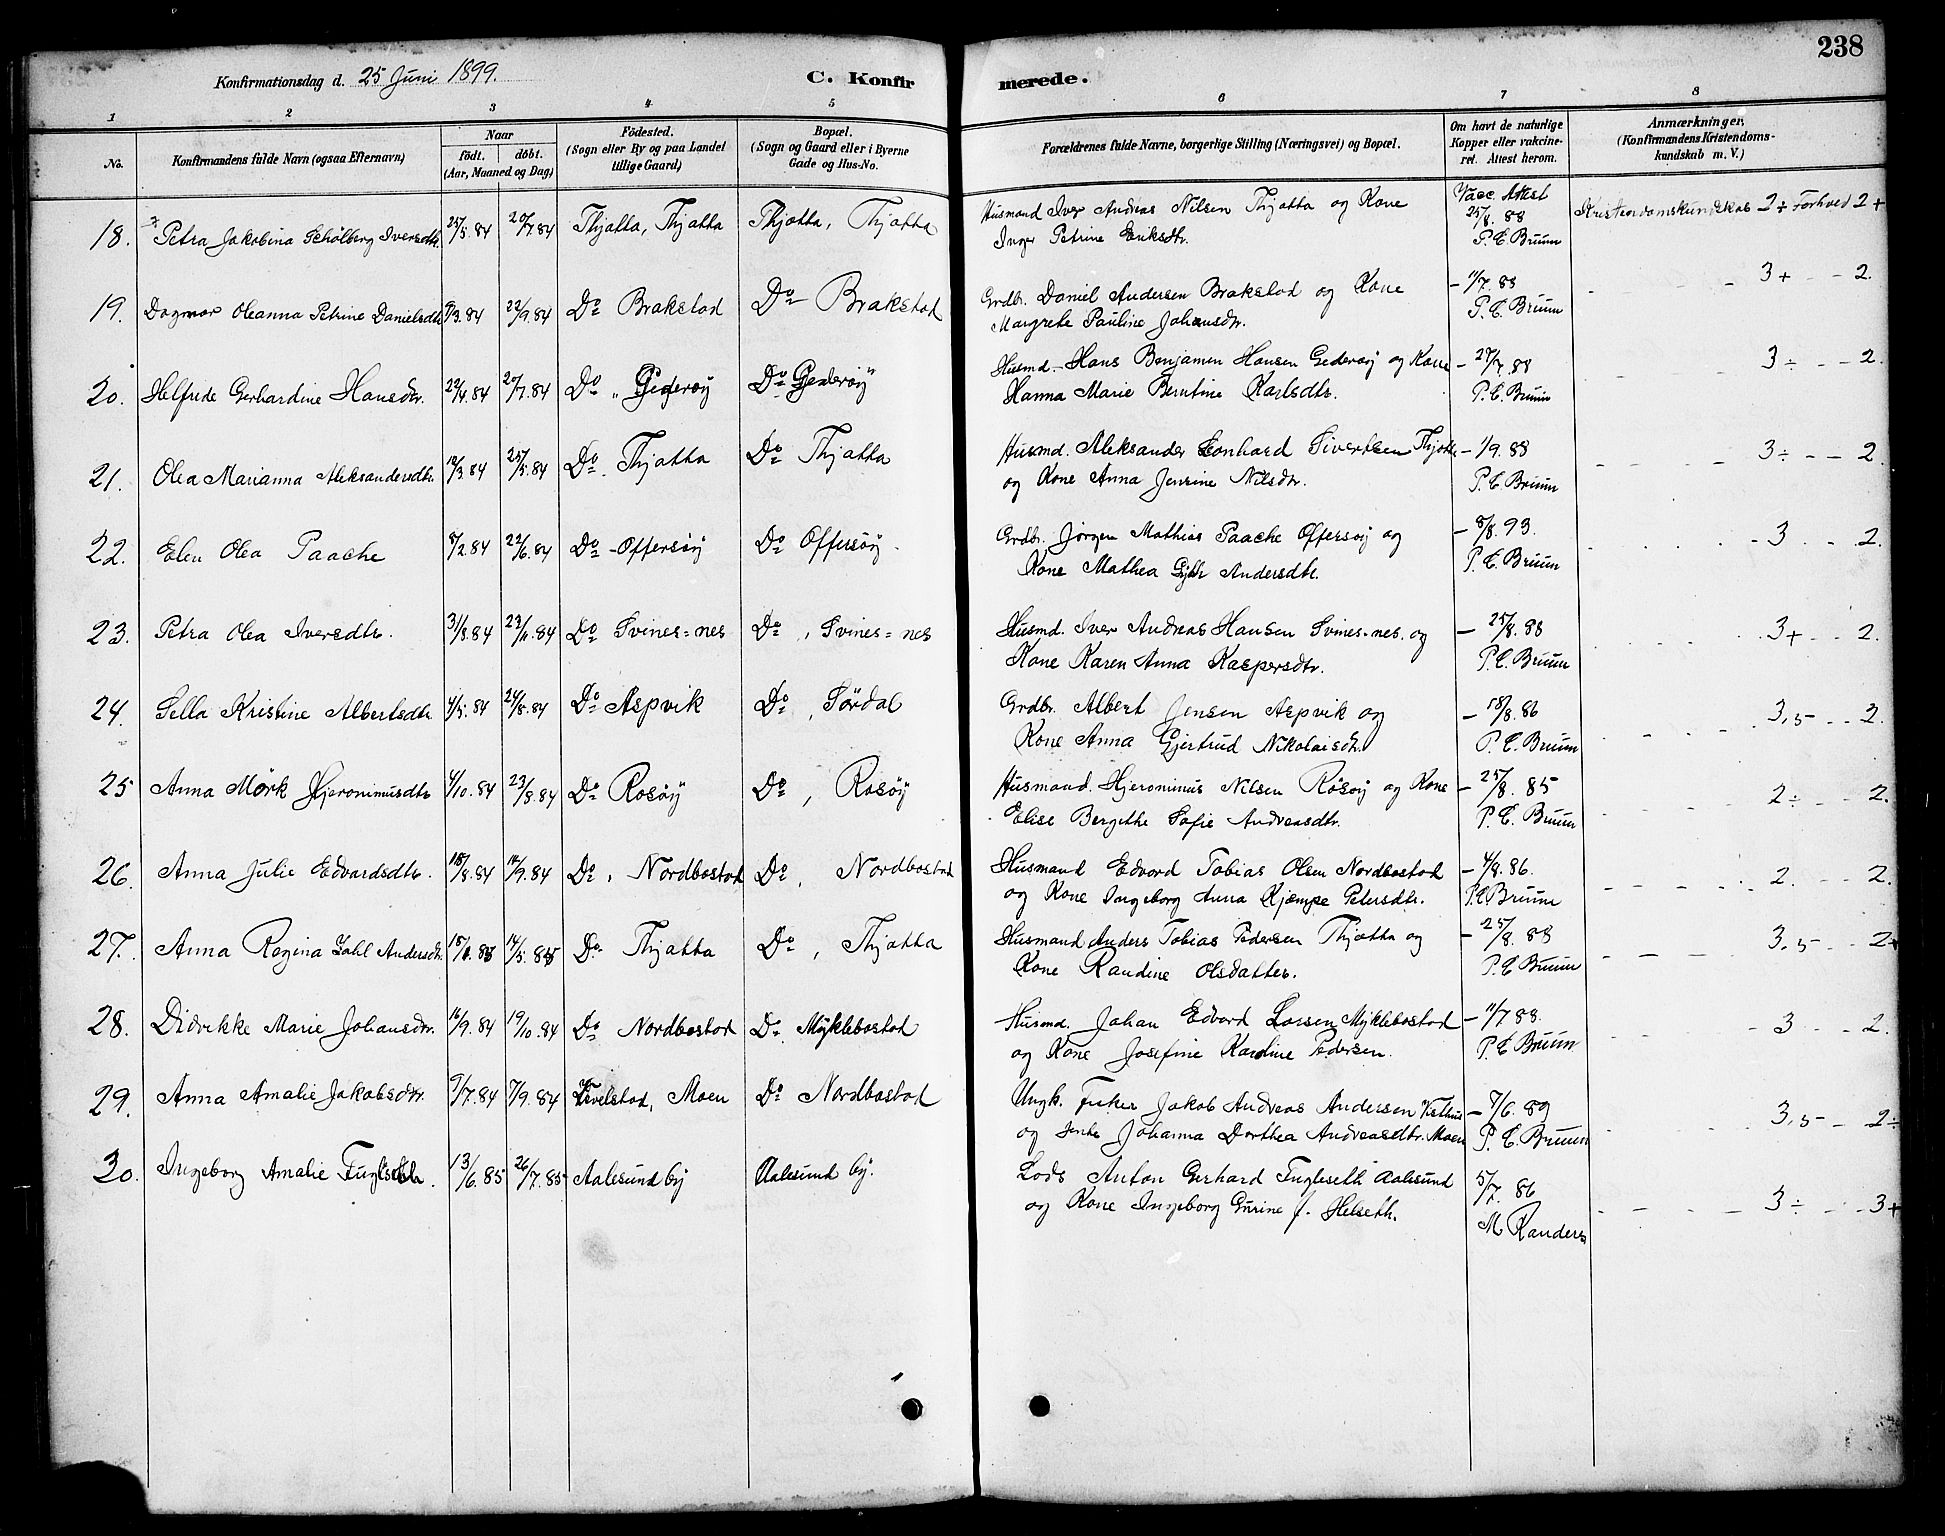 238
Konfirmationsdag d. 25 Juni 1899.
C. Konfirmerede.
1 2 3 4 5 6 7 8
No.
Konfirmandens fulde Navn (ogsaa Efternavn)
Naar
født. døbt.
(Aar, Maaned og Dag)
Födested.
(Sogn eller By og paa Landet
tillige Gaard)
Bopæl.
(Sogn og Gaard eller i Byerne
Gade og Hus-No.
Forældrenes fulde Navne, borgerlige Stilling (Næringsvei) og Bopæl.
Om havt de naturlige
Kopper eller vakcine-
ret. Attest herom.
Anmærkninger.
(Konfirmandens Kristendoms-
kundskab m. V.)
18. Petra Jakobina Schølberg Iversdtr. 25/5.84 20/7.84 Thjøtta, Thjøtta Thjøtta, Thjøtta Husmand Iver Andreas Nilsen Thjøtta og Kone
Inger Petrine Eriksdtr.
Vacc. Attest
25/8. 88
P. C. Bruun
Kristendomskundskab 2÷ Forhved 2+
19. Dagmar Oleanna Petrine Danielsdtr 9/3.84 22/9.84 Do Brakstad Do Brakstad Grdbr. Daniel Andersen Brakstad og Kone
Margrete Pauline Johansdtr.
- 11/7. 88
P. C. Bruun
3+ - - 2.
20. Helfrede Gerhardine Hansdtr. 22/4.84 20/7.84 Do „ Gjederøy Do Gjederøy Husmd. Hans Benjamen Hansen Gederøy og Kone
Hanna Marie Berntine Karlsdtr.
- 27/7.88
P. C. Bruun
3÷ - - 2.
21. Olea Marianna Aleksandersdtr. 12/3.84 25/5.84 Do. Thjøtta Do Thjøtta Husmd. Aleksander Leonhard Sivertsen Thjøtta
og Kone Anna Jensine Nilsdtr.
- 1/9. 88
P. C. Bruun
3÷ - - 2.
22. Elen Olea Paache 8/2.84 22/6.84 Do - Offersøy Do Offersøy. Grdbr. Jørgen Mathias Paache Offersøy og
Kone Mathea Andersdtr.
- 8/8. 93.
P. C. Bruun
3 . - . 2.
23. Petra Olea Iversdtr. 3/8.84 23/11.84 Do Svines=nes Do, Svines=nes Husmd. Iver Andreas Hansen Svines=nes. og
Kone Karen Anna Kaspersdtr.
- 25/8. 88
P. C. Bruun
3+ . - . 2.
24. Sella Kristine Albertsdtr. 4/5.84 24/8.84 Do Aspvik Do, Sørdal Grdbr. Albert Jensen Aspvik og
Kone Anna Gjertrud Nikolaisdtr.
- 18/8. 86
P. C. Bruun
3,5 - . - 2.
25 Anna Mørk Hjeronimusdtr 4/10.84 23/8.84 Do Rosøy Do, Rosøy Husmand. Hjeronimus Nilsen Rosøy og Kone
Elise Bergithe Sofie Andreasdtr.
- 25/8. 85
P. C. Bruun
2÷ . - - 2.
26. Anna Julie Edvardsdtr. 18/8.84 14/9.84 Do, Nordbostad Do, Nordbostad Husmand Edvard Tobias Olsen Nordbostad
og Kone Ingeborg Anna Kjæmpe Petersdtr.
- 4/8. 86.
P. C. Bruun
2. - - - 2.
27. Anna Regina Zahl Andersdtr. 14/5. 85 Do. Thjøtta Do, Thjøtta Husmand Anders Tobias Pedersen Thjøtta og
Kone Randine Olsdatter.
- 25/8. 88
P. C. Bruun
3,5 - . - 2+
28. Didrikke Marie Johansdtr. 16/9. 84 19/10.84 Do Nordbostad Do. Myklebostad Husmd. Johan Edvard Larsen Myklebostad
og Kone Josefine Karoline Pedersen.
- 11/7 88.
P. C. Bruun
3 . - - 2.
29. Anna Amalie Jakobsdtr. 9/7.84 7/9. 84 Moen Do Nordbostad Ungk. Fisker Jakob Andreas Andersen
og Johanna Dorthea Andreasdtr. Moen
- 7/6. 89
P. C. Bruun
3,5 - - 2÷
30. Ingeborg Amalie Fugleseth. 13/6.85 26/7.85 Aalesund by Aalesund by. Lods Anton Gerhard Fugleseth Aalesund
og Kone Ingeborg Gurine f. Helseth.
5/7. 86
M Randers
3÷ . - . 3+